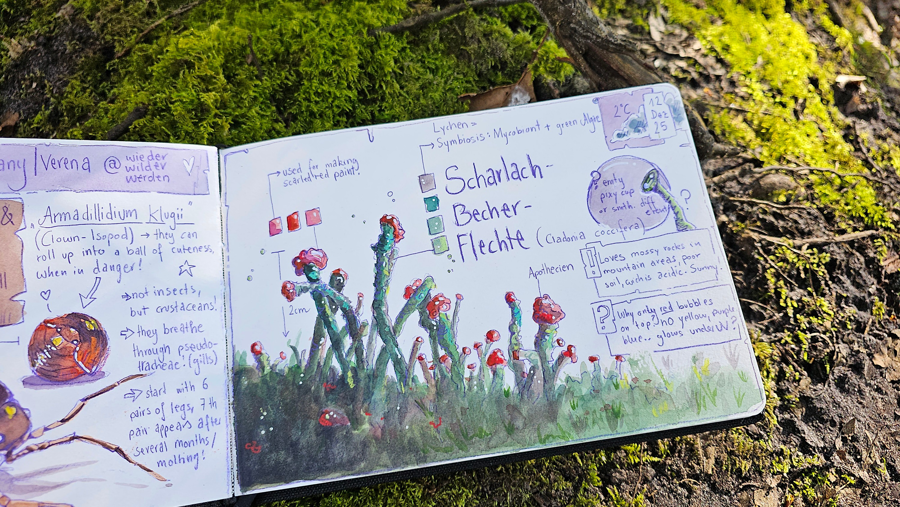 any/Verena @ wieder
wilder
werden
&
"Armadillidium klugii"
(Clown-Isopod) → they can
roll up into a ball of cuteness,
when in danger!
→ not insects,
but crustaceans!
⇒ they breathe
through pseudo-
tracheae! (gills)
⇒ start with 6
pairs of legs, 7th
pair appears after
several months/
molting!
used for making
scarlet red paint!
2cm
Lychen =
Symbiosis: Mycobiont + green Algae
Scharlach-
Becher-
Flechte (Cladonia coccifera)
2°C
12
Dez
25
? emty
pixy cup
or smth.
?
Apothecien
! Loves mossy rocks in
mountain areas, poor
soil, acidic. Sunny.
? Why only red bubbles
on top? no yellow, purple
blue.. glows under UV?